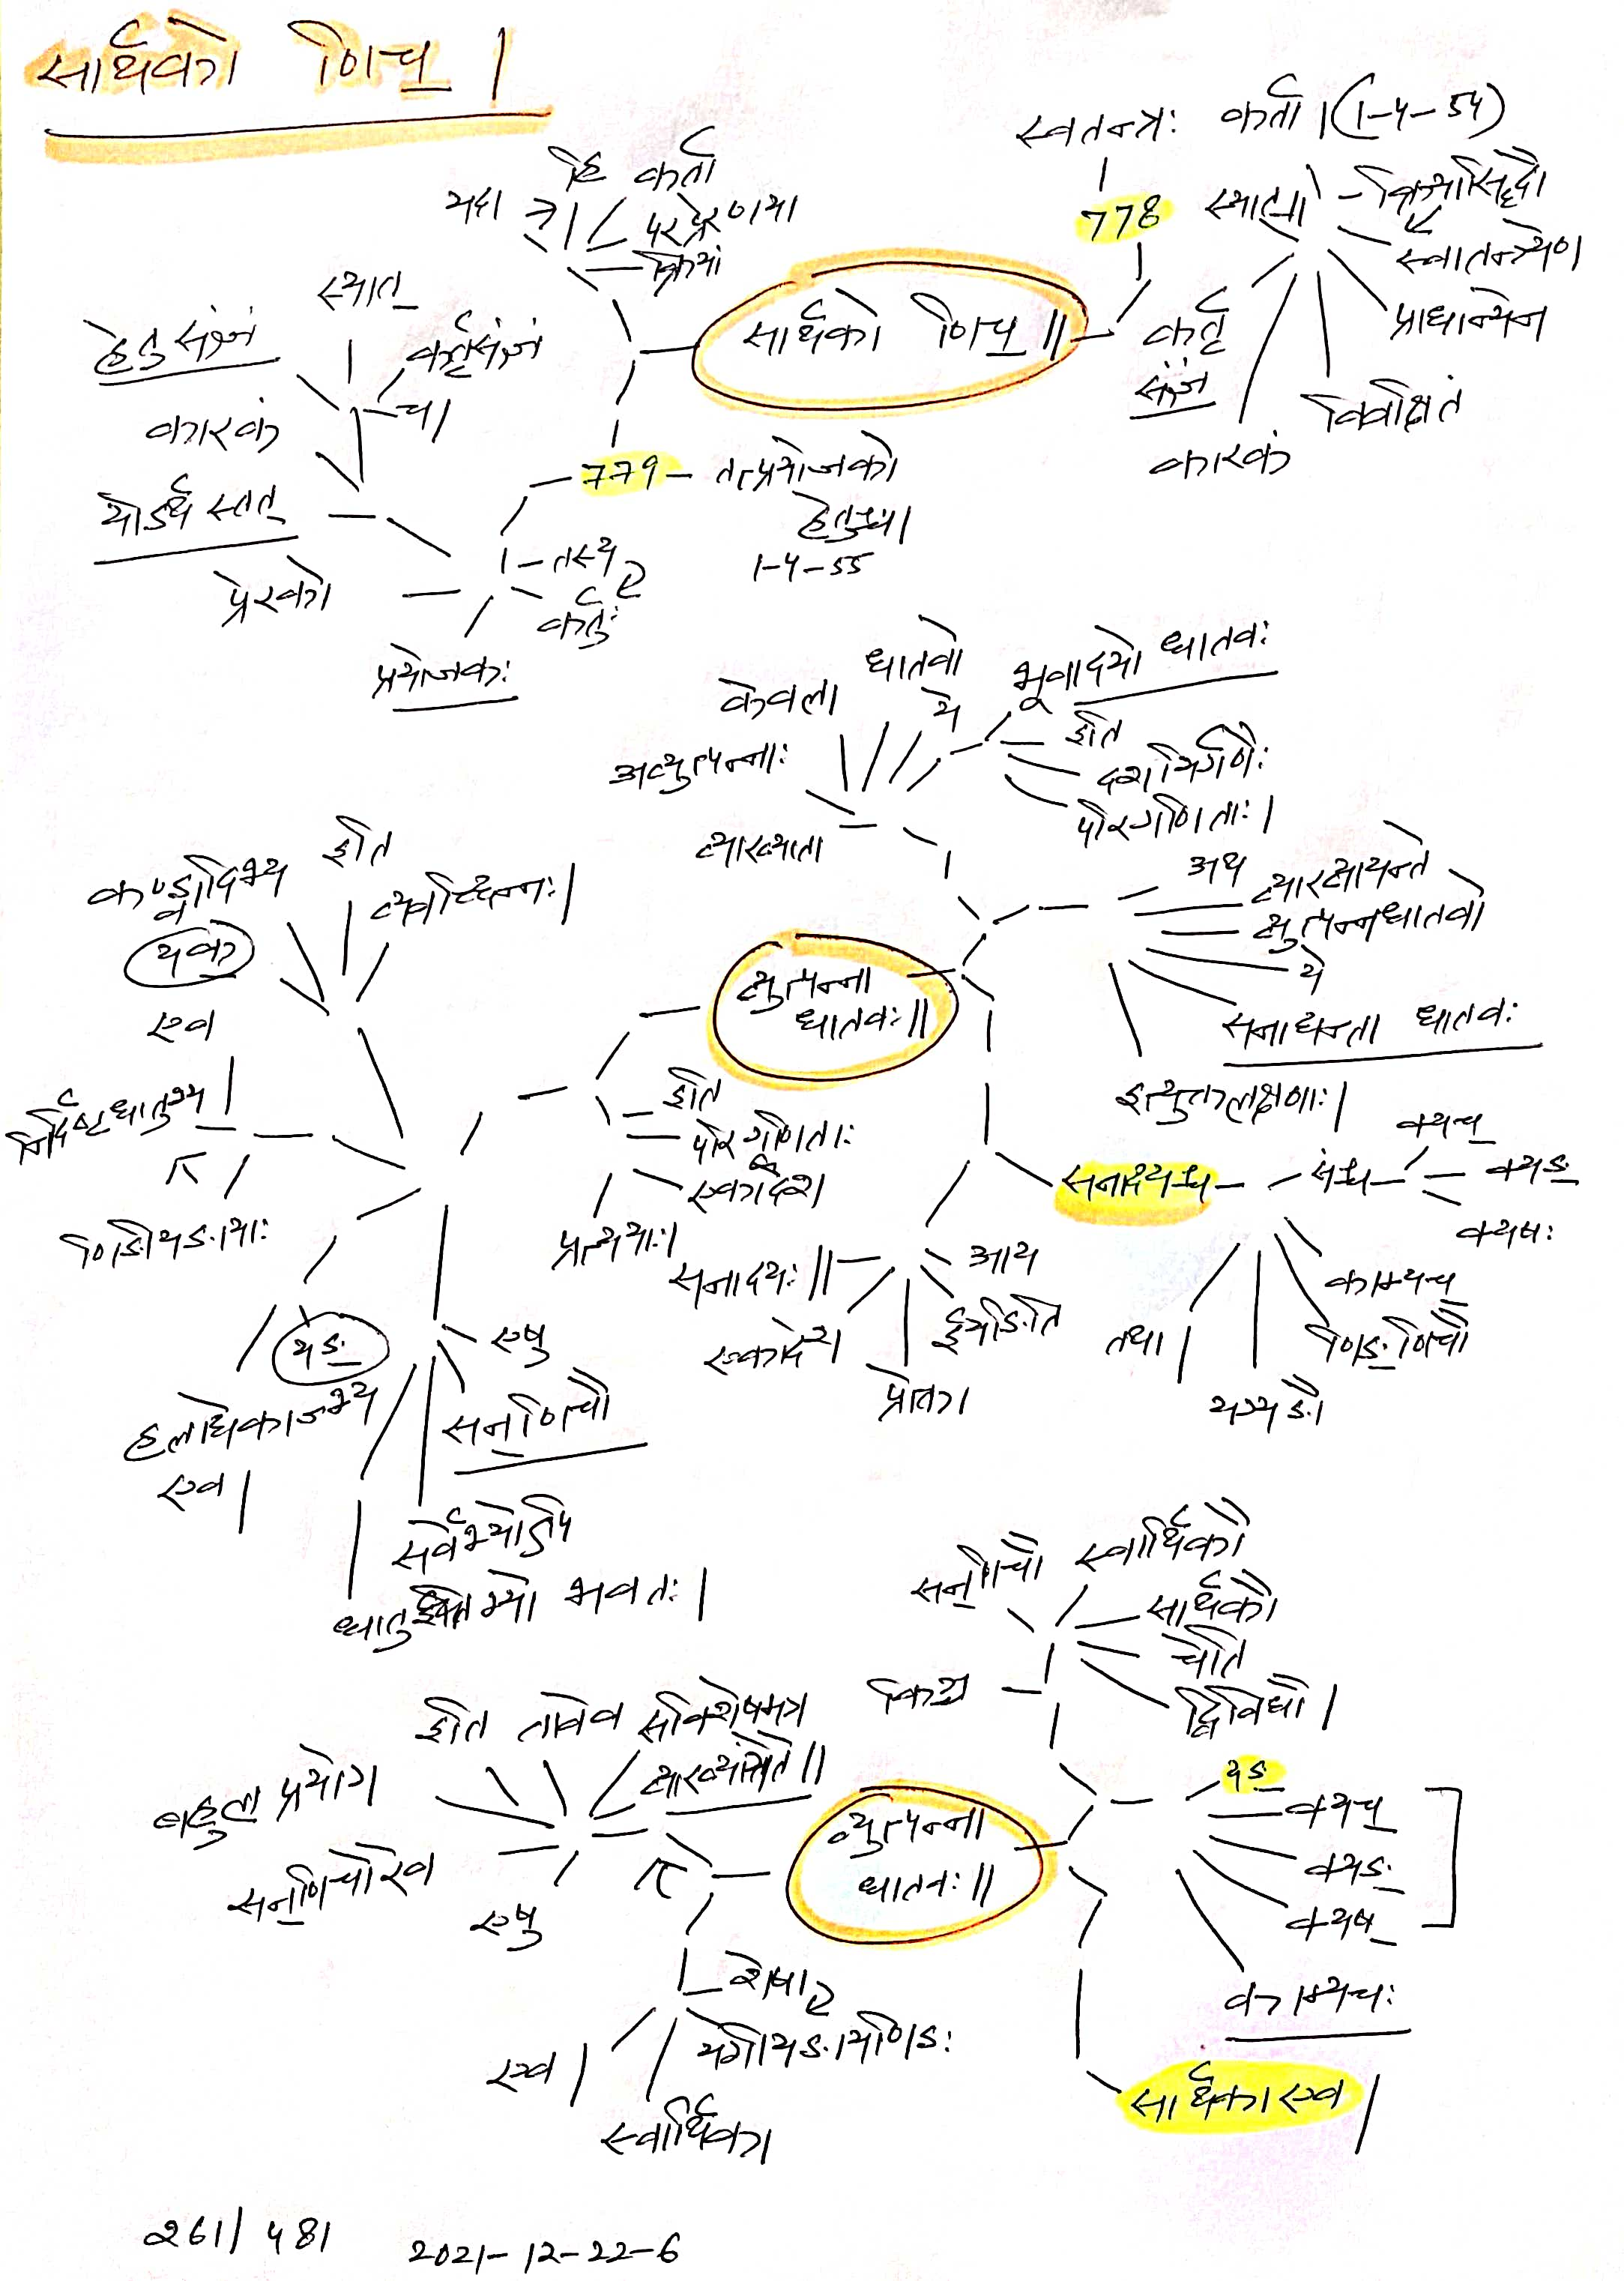 सार्थको णिच् |
स्वतन्त्रः कर्ता | (1-4-54)
778
स्यात्
क्रियासिद्धौ
स्वातन्त्र्येण
प्राधान्येन
विवक्षितं
कारकं
कर्तृ
संज्ञं
सार्थको णिच् ||
यदा
हि कर्ता
परप्रेरणया
क्रियां
779
तत्प्रयोजको
हेतुश्च |
1-4-55
स्यात्
हेतुसंज्ञं
कर्तृसंज्ञं
च |
कारकं
योऽर्थ स्तत्
प्रेरको
तस्य
कर्तुः
प्रयोजकः
केवला
धातवो
ये
भूवादयो धातवः
इति
दशभिर्गणैः
परिगणिताः |
अव्युत्पन्नाः
व्याख्याता
अथ
व्याख्यायन्ते
व्युत्पन्नधातवो
ये
सनाद्यन्ता धातवः
इत्युक्तलक्षणाः |
व्युत्पन्ना
धातवः ||
सनादयश्च
संश्च
क्यच्
क्यङ्
क्यषः
काम्यच्
णिङ्णिचौ
यग्यङौ
तथा |
आय
ईयङिति
प्रोक्ता
एकादश
सनादयः ||
इति
परिगणिताः
एकादश
प्रत्ययाः |
कण्ड्वादिभ्य
इति
व्यवच्छिन्नः |
यक्
एव
निर्दिष्टधातुभ्य
णिङीयङायाः
यङ्
हलाद्येकाज्भ्य
एव |
एषु
सन्णिचौ
सर्वेभ्योऽपि
धातुभ्यो भवतः |
सन्णिचौ
स्वार्थिकौ
सार्थकौ
चेति
द्विविधौ |
किञ्च
यङ्
क्यच्
क्यङ्
क्यष्
काम्यचः
सार्थका एव |
व्युत्पन्ना
धातवः ||
इति तावेव सविशेषमत्र
व्याख्यास्येते ||
बहुल प्रयोग
सन्णिचोरेव
एषु
शेषा
यगीयङायणिङः
स्वार्थिका
एव |
261 / 481
2021-12-22-6